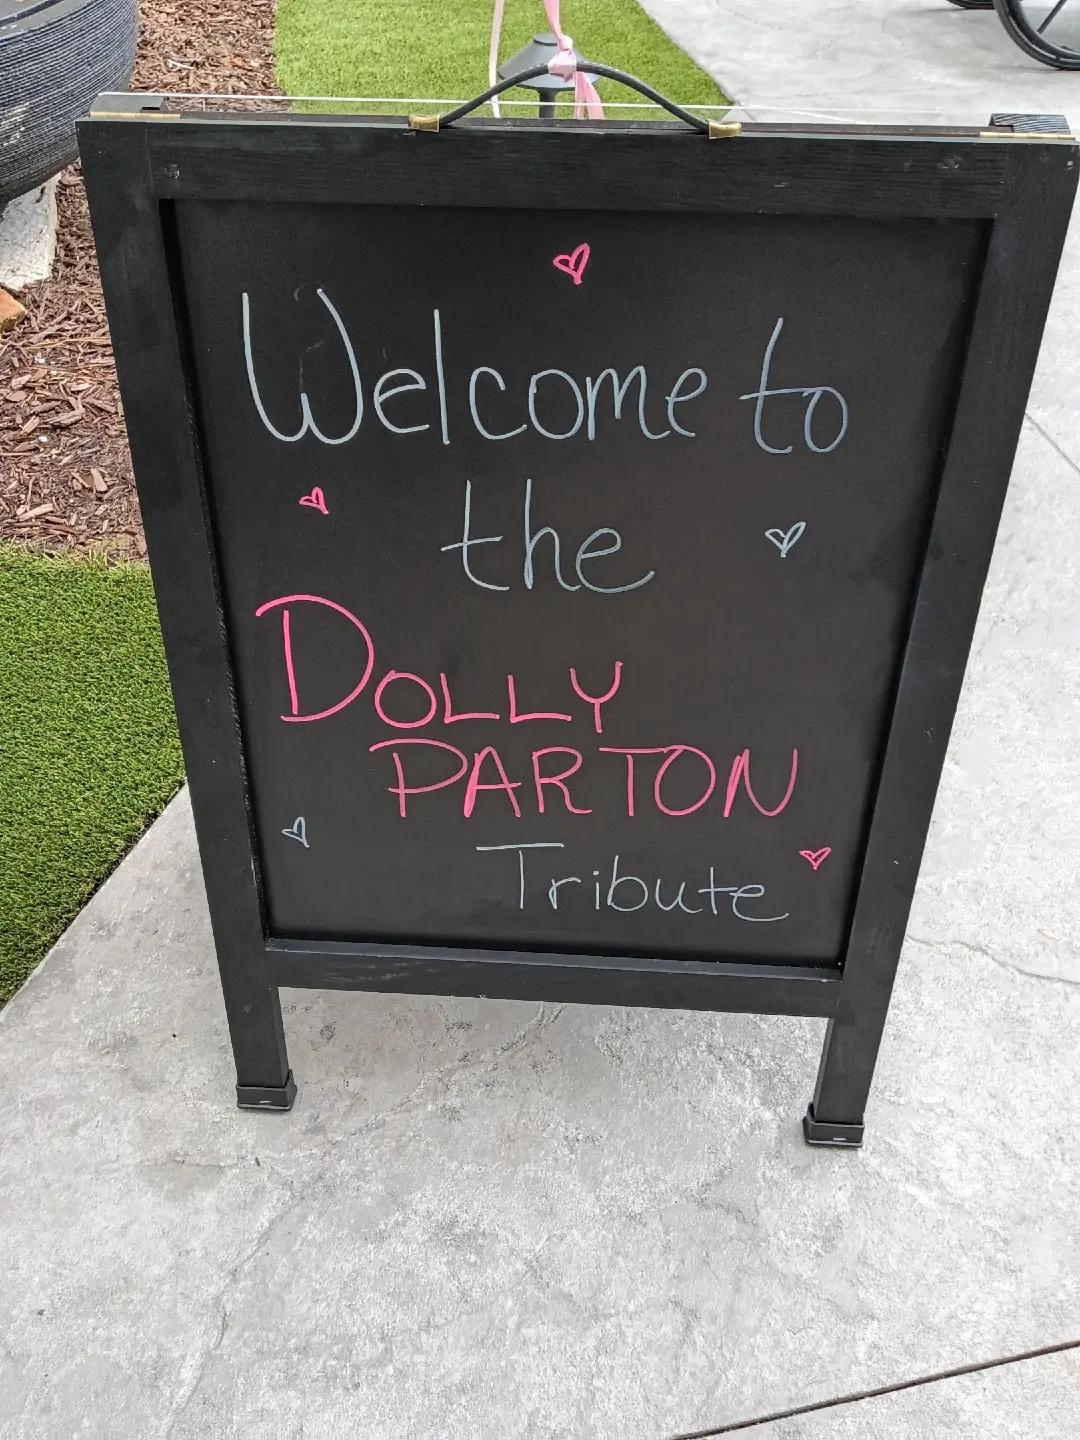 Welcome to
the
DOLLY
PARTON
Tribute